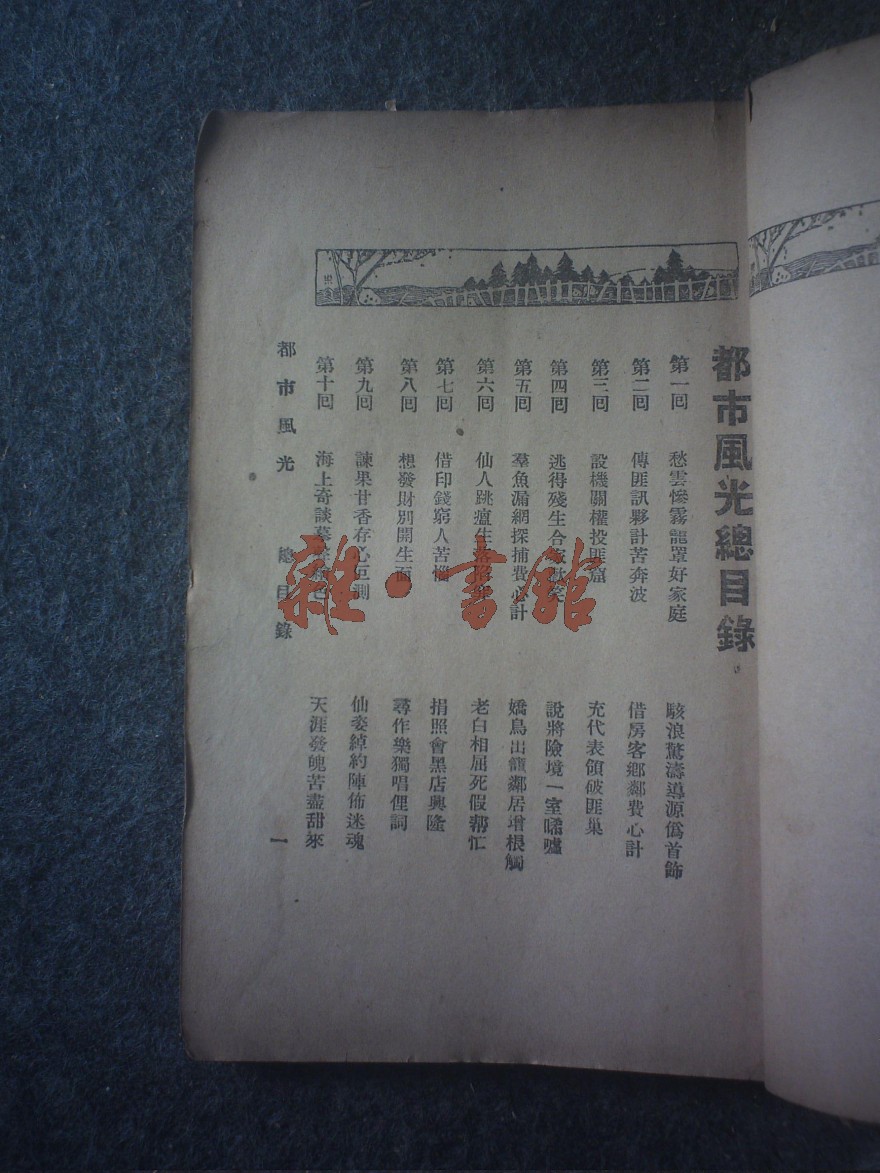 都市風光總目錄
第一回 愁雲慘霧籠罩好家庭 駭浪驚濤導源僞首飾
第二回 傳匪訊夥計苦奔波 借房客鄉鄰費心計
第三回 設機關權投匪窟 充代表領破匪巢
第四回 逃得殘生合家 說將險境一室唏噓
第五回 羣魚漏網探捕費心計 嬌鳥出籠鄰居增根觸
第六回 仙人跳瘟生落陷 老白相屈死假幫忙
第七回 借印錢窮人苦惱 捐照會黑店興隆
第八回 想發財別開生面 尋作樂獨唱俚詞
第九回 諫果甘香存心叵測 仙姿綽約陣佈迷魂
第十回 海上奇談 天涯發魄苦盡甜來
都市風光 總目錄 一
雜·書館